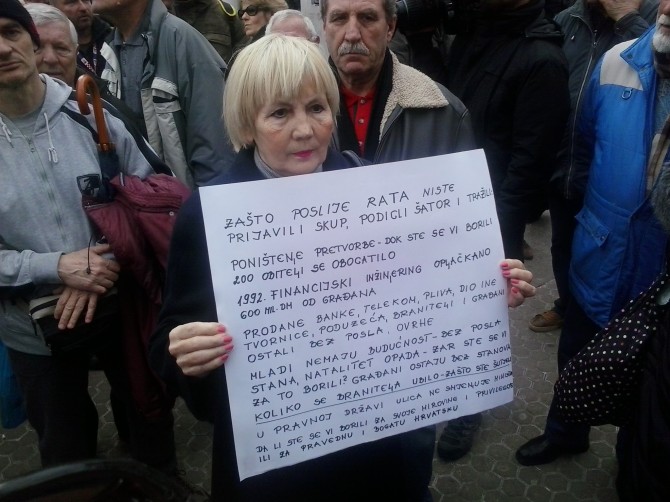 ZAŠTO POSLIJE RATA NISTE
PRIJAVILI SKUP, PODIGLI ŠATOR I TRAŽILI-
PONIŠTENJE PRETVORBE- DOK STE SE VI BORILI
200 OBITELJI SE OBOGATILO
1992. FINANCIJSKI INŽINJERING OPLJAČKANO
600 ML. DM OD GRAĐANA
PRODANE BANKE, TELEKOM, PLIVA, DIO INE
TVORNICE, PODUZEĆA, BRANITELJI I GRAĐANI
OSTALI BEZ POSLA, OVRHE
MLADI NEMAJU BUDUĆNOST- BEZ POSLA
STANA, NATALITET OPADA- ZAR STE SE VI
ZA TO BORILI? GRAĐANI OSTAJU BEZ STANOVA
KOLIKO SE BRANITELJA UBILO- ZAŠTO STE ŠUTJELI
U PRAVNOJ DRŽAVI ULICA NE SMJENJUJE NIKOGA
DA LI STE SE VI BORILI ZA SVOJE HIROVINE I PRIVILEGIJE
ILI ZA PRAVEDNU I BOGATU HRVATSKU